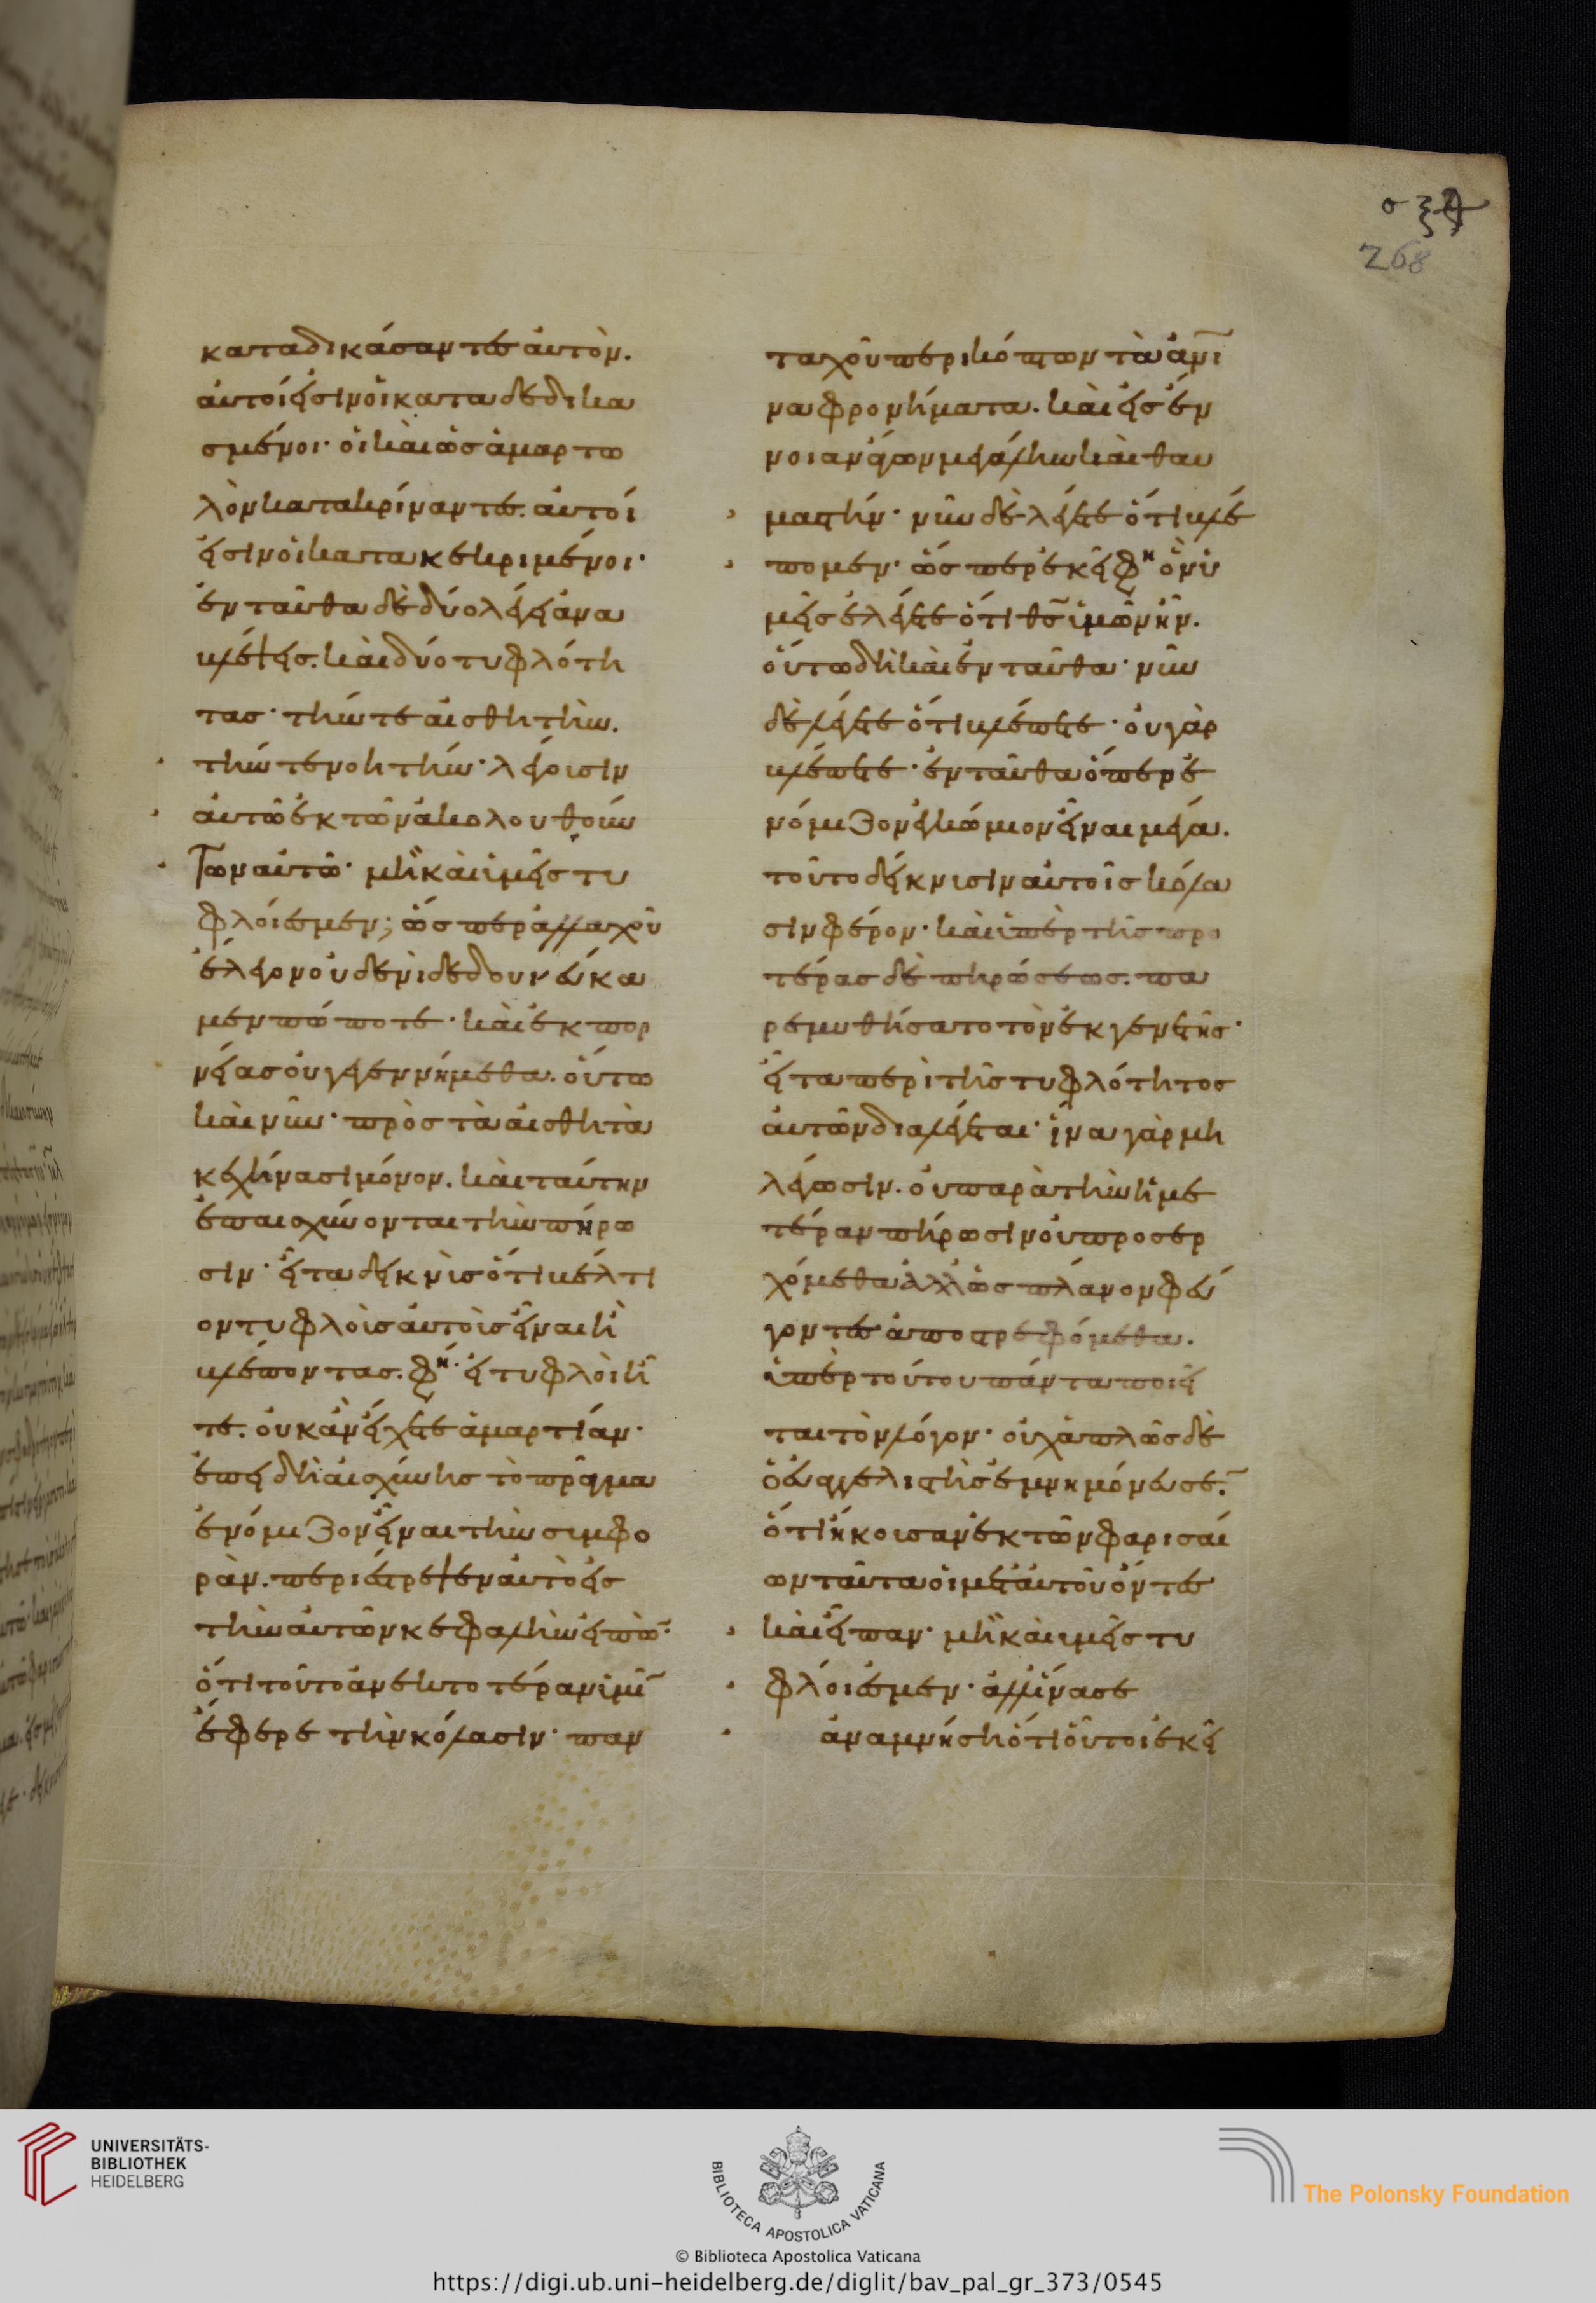 σξη
268
καταδικάσαντες αὐτὸν.
αὐτοί εἰσιν οἱ καταδεδικα
σμένοι· οἱ καὶ ὡς ἁμαρτω
λὸν κατακρίναντες. αὐτοί
εἰσιν οἱ κατακεκριμένοι·
ἐνταῦθα δὲ δύο λέγει ἀνα
βλέψεις. καὶ δύο τυφλότη
τας· τήν τε αἰσθητὴν.
τήν τε νοητήν· λέγουσιν
αὐτῷ ἐκ τῶν ἀκολουθούν
των αὐτῶ· μὴ καὶ ἡμεῖς τυ
φλοί ἐσμεν; ὥσπερ ἀλλαχοῦ
ἔλεγον οὐδενὶ δεδουλεύκα
μεν πώποτε· καὶ ἐκ πορ
νείας οὐ γεγεννήμεθα. οὕτω
καὶ νῦν· πρὸς τὰ αἰσθητὰ
κεχήνασι μόνον. καὶ ταύτην
ἐπαισχύνονται τὴν πήρω
σιν· εἶτα δεικνὺς ὅτι βέλτι
ον τυφλοὺς αὐτοὺς εἶναι ἢ
βλέποντας. φη. εἰ τυφλοὶ ἦ
τε. οὐκ ἂν εἴχετε ἁμαρτίαν·
ἐπειδὴ αἰσχύνης τὸ πρᾶγμα
ἐνόμιζον εἶναι τὴν συμφο
ρὰν. περιέτρεψεν αὐτὸ εἰς
τὴν αὐτῶν κεφαλὴν εἰπὼν·
ὅτι τοῦτο ἀνεκτοτέραν ὑμῖν
ἔφερε τὴν κόλασιν· παν
ταχοῦ περικόπτων τὰ ἀνι
να φρονήματα. καὶ εἰς ἔν
νοιαν ἄγων μεγάλην καὶ θαυ
μαστήν· νῦν δὲ λέγετε ὅτι βλέ
πομεν· ὥσπερ ἐκεῖ φη ὃν ὑ
μεῖς ἐλέγετε ὅτι θς ὑμῶν ἦν.
οὕτω δὴ καὶ ἐνταῦθα· νῦν
δὲ λέγετε ὅτι βλέπετε· οὐ γὰρ
βλέπετε· ἐνταῦθα ὅπερ ἐ
νόμιζον ἐγκώμιον εἶναι μέγα.
τοῦτο δείκνυσιν αὐτοῖς κόλα
σιν φέρον· καὶ ὑπὲρ τῆς προ
τέρας δὲ πηρώσεως. πα
ρεμυθήσατο τὸν ἐκ γενετῆς·
εἶτα περὶ τῆς τυφλότητος
αὐτῶν διαλέγεται· ἵνα γὰρ μὴ
λέγωσιν. οὐ παρὰ τὴν ἡμε
τέραν πήρωσιν οὐ προσερ
χόμεθα ἀλλ' ὡς πλάνον φεύ
γοντες ἀποστρεφόμεθα.
ὑπὲρ τούτου πάντα ποιεῖ
ται τὸν λόγον· οὐχ ἁπλῶς δὲ
ὁ εὐαγγελιστὴς ἐμνημόνευσεν·
ὅτι ἤκουσαν ἐκ τῶν φαρισαί
ων ταῦτα οἱ μετ' αὐτοῦ ὄντες
καὶ εἶπαν· μὴ καὶ ἡμεῖς τυ
φλοί ἐσμεν· ἀλλ' ἵνα σε
ἀναμνήση ὅτι οὗτοι ἐκεῖ
UNIVERSITÄTS-
BIBLIOTHEK
HEIDELBERG
BIBLIOTECA APOSTOLICA VATICANA
The Polonsky Foundation
© Biblioteca Apostolica Vaticana
https://digi.ub.uni-heidelberg.de/diglit/bav_pal_gr_373/0545